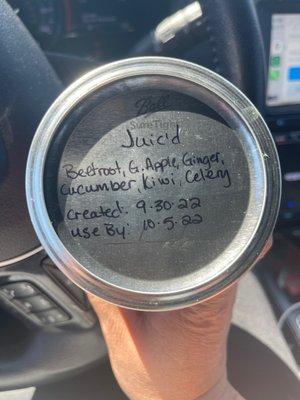 Ball
SureTight
Juic'd
Beetroot, G. Apple, Ginger,
Cucumber, Kiwi, Celery
Created: 9.30.22
Use By: 10.5.22